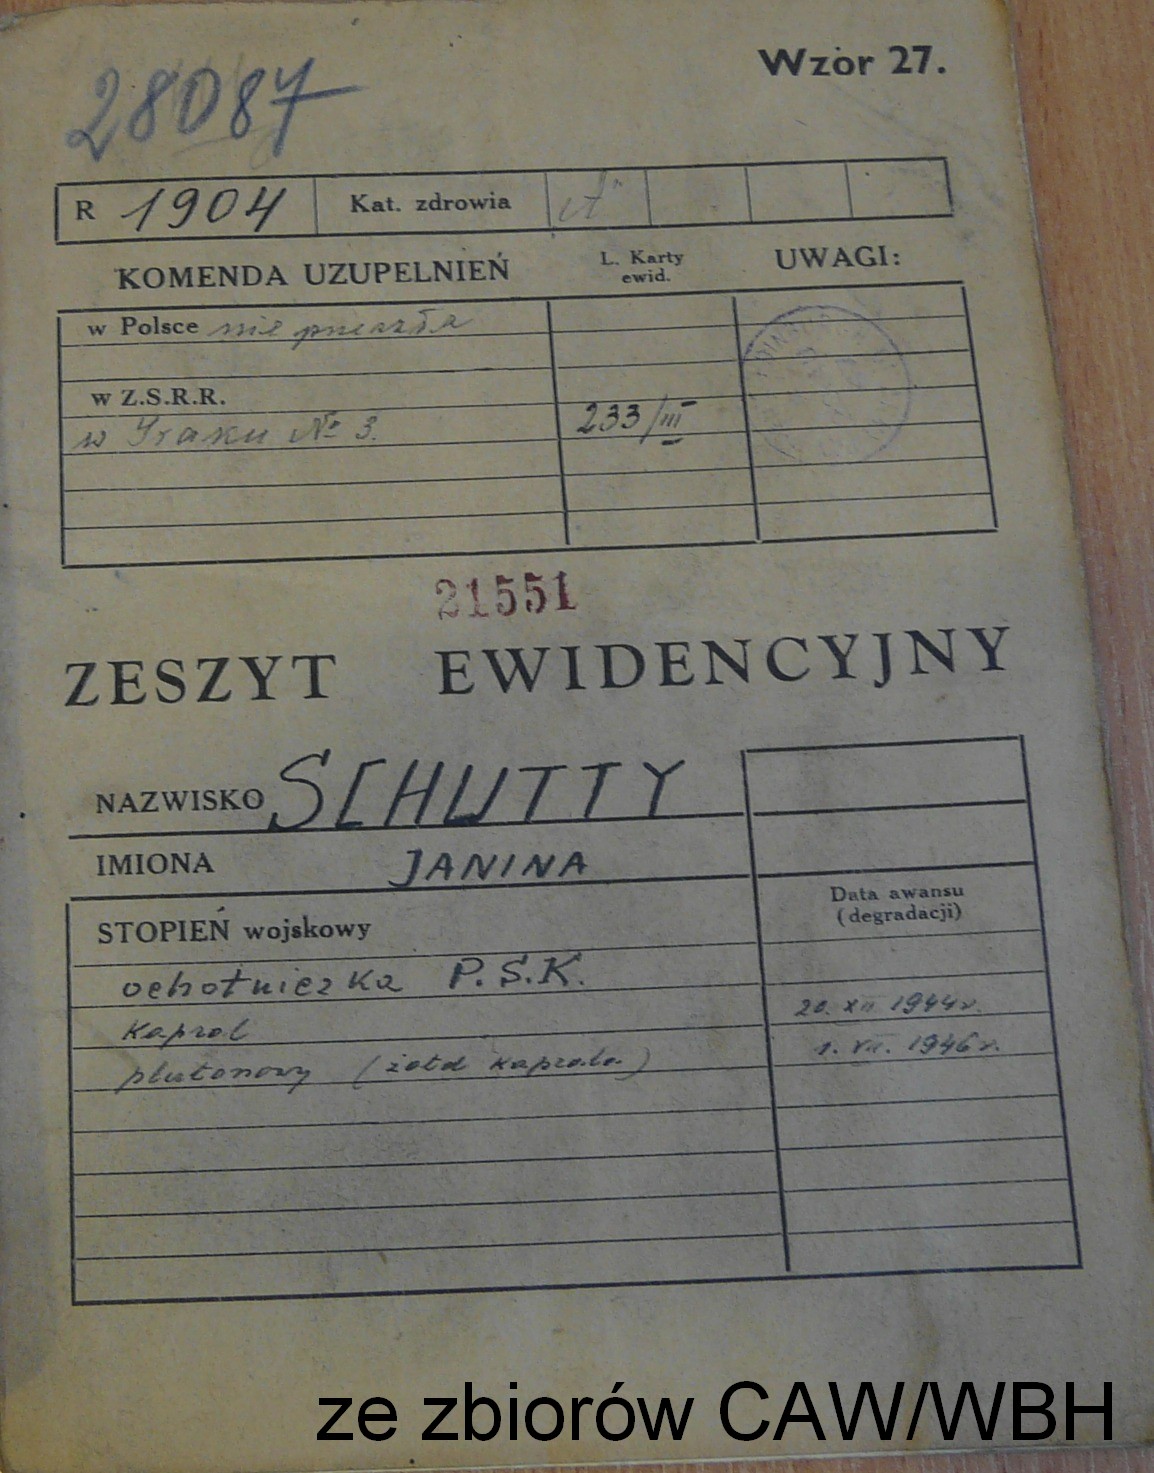 Wzór 27.
28087
R 1904 Kat. zdrowia "A"
KOMENDA UZUPEŁNIEŃ L. Karty ewid. UWAGI:
w Polsce nie
w Z.S.R.R.
w Iraku № 3. 233/III
21551
ZESZYT EWIDENCYJNY
NAZWISKO SCHUTTY
IMIONA JANINA
STOPIEŃ wojskowy Data awansu (degradacji)
ochotniczka P.S.K.
kapral 20. XII 1944r.
plutonowy (żołd kaprala) 1. VII. 1946r.
ze zbiorów CAW/WBH